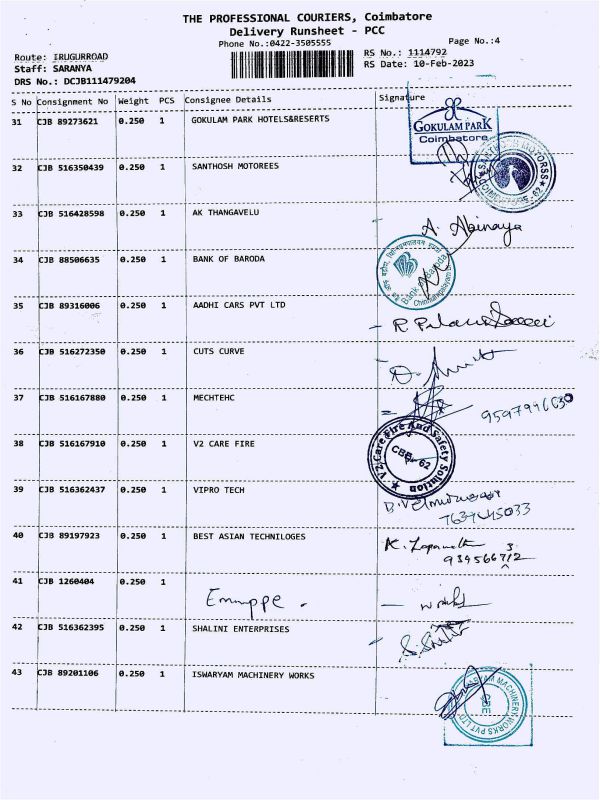 THE PROFESSIONAL COURIERS, Coimbatore
Delivery Runsheet - PCC
Phone No.:0422-3505555 Page No.:4
Route: IRUGURROAD RS No.: 1114792
Staff: SARANYA RS Date: 10-Feb-2023
DRS No.: DCJB111479204
S No Consignment No Weight PCS Consignee Details Signature
31 CJB 89273621 0.250 1 GOKULAM PARK HOTELS&RESERTS
GOKULAM PARK
Coimbatore
32 CJB 516350439 0.250 1 SANTHOSH MOTOREES
33 CJB 516428598 0.250 1 AK THANGAVELU A. Abinaya
34 CJB 88506635 0.250 1 BANK OF BARODA
Bank of Baroda
35 CJB 89316006 0.250 1 AADHI CARS PVT LTD
36 CJB 516272350 0.250 1 CUTS CURVE
37 CJB 516167880 0.250 1 MECHTEHC
38 CJB 516167910 0.250 1 V2 CARE FIRE
V2 Care Fire And Safety Solution
CBE - 62
39 CJB 516362437 0.250 1 VIPRO TECH
40 CJB 89197923 0.250 1 BEST ASIAN TECHNILOGES
41 CJB 1260404 0.250 1
42 CJB 516362395 0.250 1 SHALINI ENTERPRISES
43 CJB 89201106 0.250 1 ISWARYAM MACHINERY WORKS